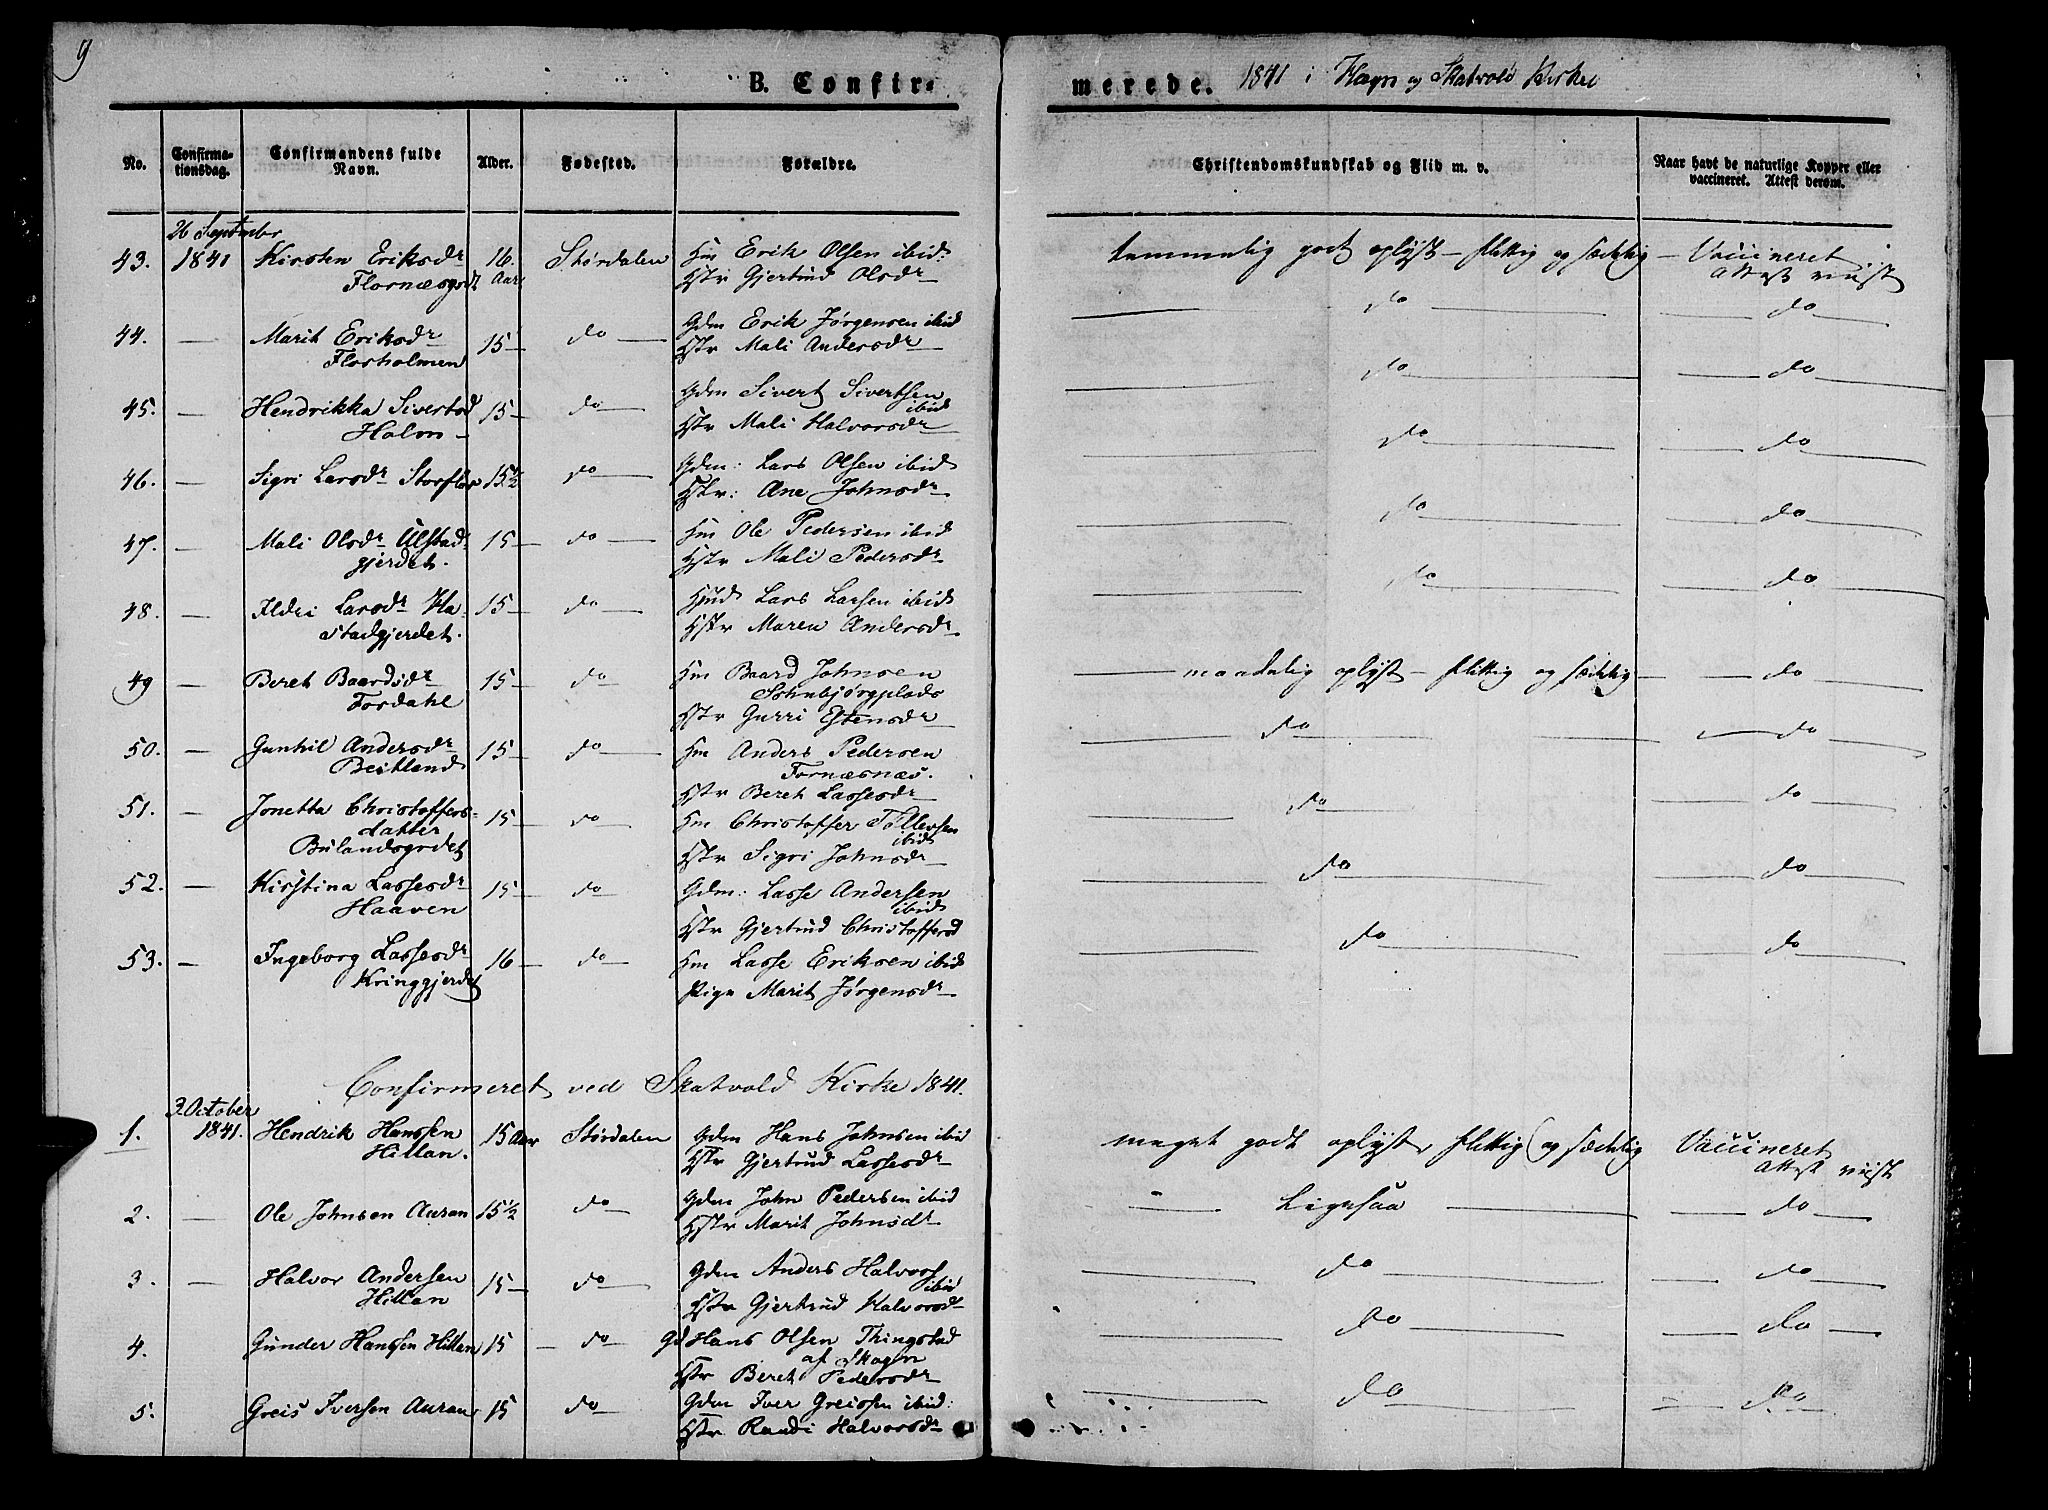 9
B. Confirmerede. 1841 i Hegn og Skatvold Kirker
No.
Confirmationsdag.
Confirmandens fulde Navn.
Alder.
Fødested.
Forældre.
Christendomskundskab og Flid m. v.
Naar havt de naturlige Kopper eller
vaccineret. Attest derom.
26 September
43. 1841 Kirsten Eriksdr 16 Størdalen Hm Erik Olsen ibid: temmelig godt oplyst – flittig og sædelig – Vaccineret
Flornæsgrdt Aar Hstr Gjertrud Olsdr Attest viist
44. — Marit Eriksdr 15 do Gdm Erik Jørgensen ibid do do
Florholmen Hstr Mali Andersdr
45. — Hendrikka Sivertsd 15 do Gdm Sivert Sivertsen do do
Halm ibid
Hstr Mali Halvorsdr
46. — Sigri Larsdr Storflor 15½ do Gdm: Lars Olsen ibid do do
Hstr: Ane Johnsdr
47. — Mali Olsdr Ulstad- 15 do Hm Ole Pedersen ibid do do
gjerdet. Hstr Mali Pedersdr
48. — Ildri Larsdr Ha- 15 do Hmd Lars Larsen ibid do do
stadgjerdet. Hstr Maren Andersdr
49 — Beret Baardsdr 15 do Hm Baard Johnsen maadelig oplyst – flittig og sædelig do
Fordahl Sohnbjørgplads
Hstr Gurri Estensdr
50. — Gunhil Andersdr 15 do Hm Anders Pedersen do do
Beitland Fornæsnæs.
Hstr Beret Lassesdr
51. — Jonetta Christoffers- 15 do Hm Christoffer Tollevsen do do
datter ibid
Bulandsgrdet Hstr Sigri Johnsdr
52. — Kirstina Lassesdr 15 do Gdm: Lasse Andersen do do
Haaven ibid
Hstr Gjertrud Christoffersd
53. — Ingeborg Lassesdr 16 do Hm Lasse Eriksen ibid do do
Kringgjerdet Pige Marit Jørgensdr
Confirmeret ved Skatvold Kirke 1841.
3 October
1. 1841. Hendrik Hanssen 15 Aar Størdalen Gdm Hans Johnsen ibid meget godt oplyst, flittig og sædelig Vaccineret
Hillan. Hstr Gjertrud Lassesdr Attest viist
2. — Ole Johnsen Auran 15½ do Gdm John Pedersen ibid Ligesaa do
Hstr Marit Johnsdr
3. — Halvor Andersen 15 do Gdm Anders Halvors. do do
Hillan ibid
Hstr Gjertrud Halvorsdr
4. Gunder Hanssen Hillan 15 do Gd Hans Olsen Thingstad do do
af Skogn
Hstr Beret Pedersdr
5. Greis Iversen Auran 15 do Gdm Iver Greissen ibid: do do
Hstr Randi Halvorsdr